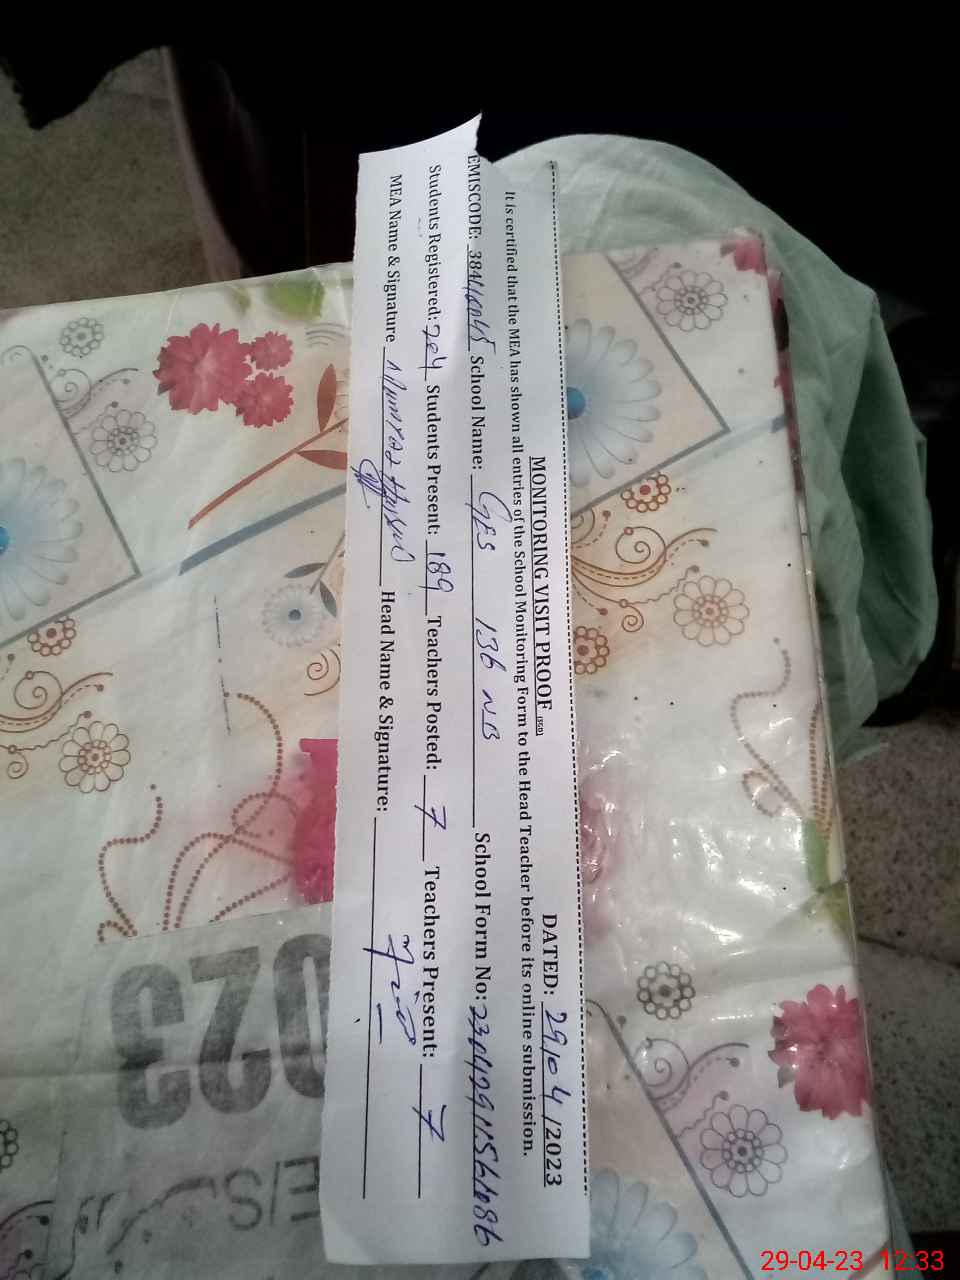 MONITORING VISIT PROOF (SGD) DATED: 29/04/2023
It is certified that the MEA has shown all entries of the School Monitoring Form to the Head Teacher before its online submission.
EMISCODE: School Name: GES 136 NB School Form No:
Students Registered: 204 Students Present: 189 Teachers Posted: 7 Teachers Present: 7
MEA Name & Signature Head Name & Signature:
023
29-04-23 12:33